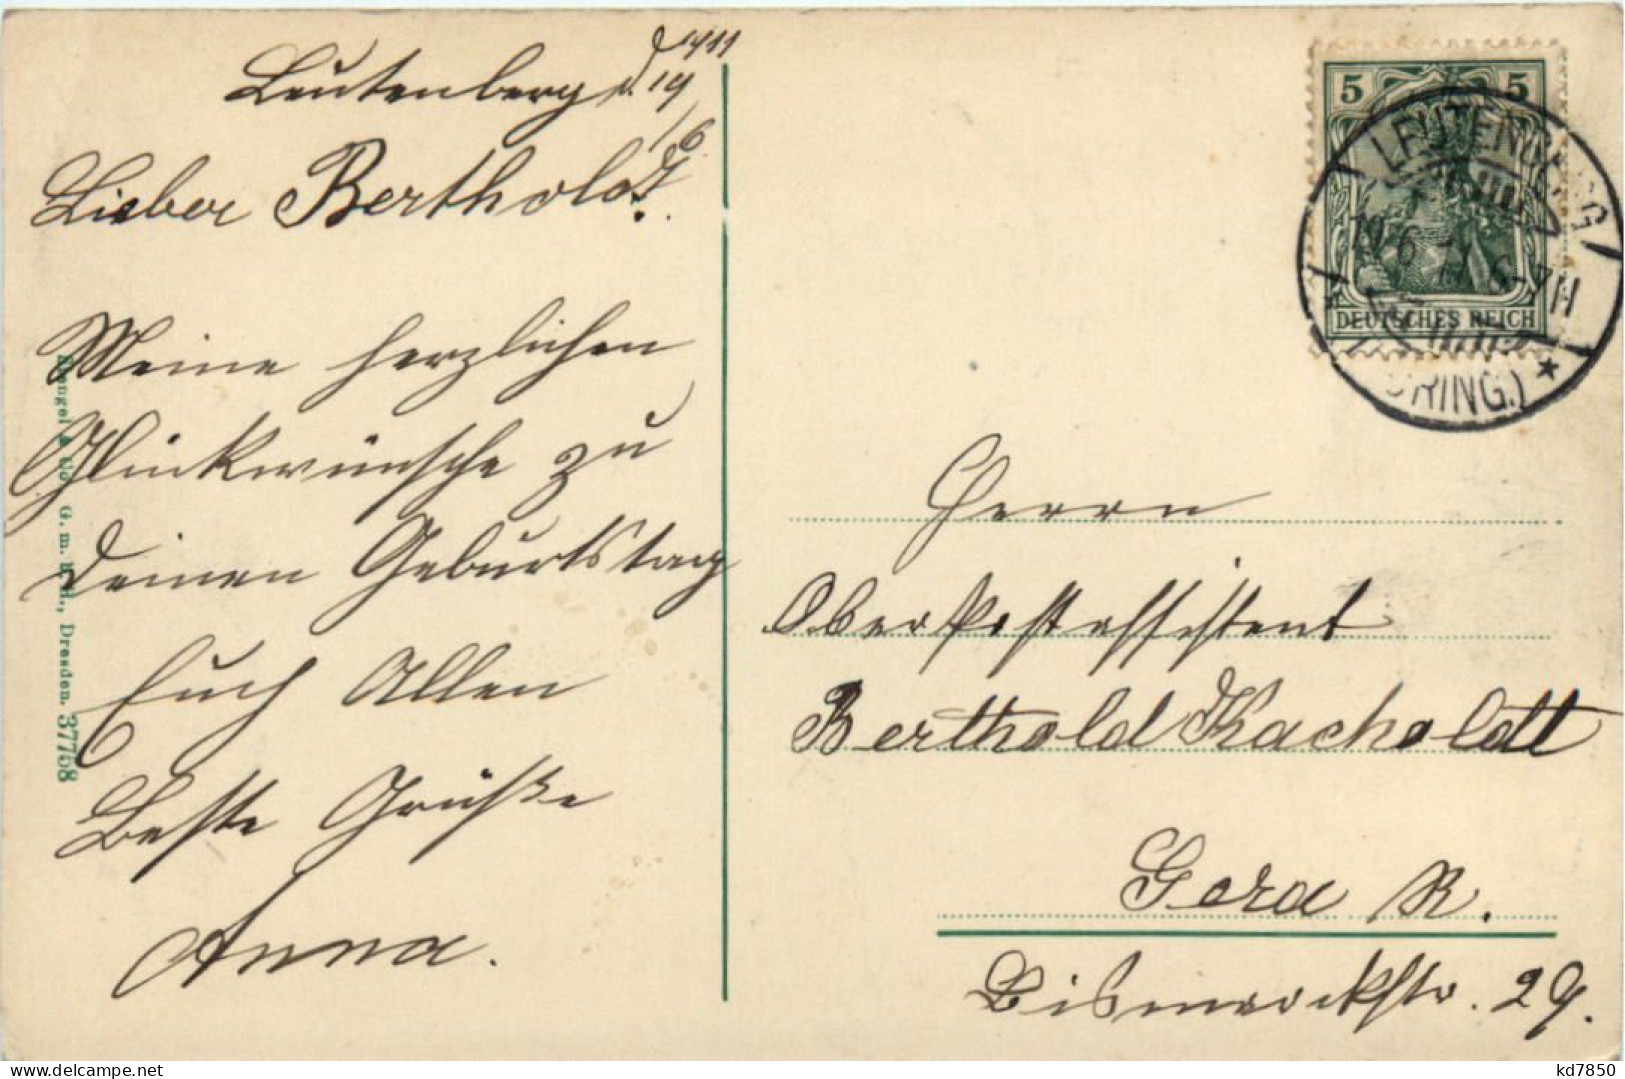 Leutenberg, d. 19/6 1911
Lieber Berthold!
Meine herzlichen
Glückwünsche zu
Deinen Geburtstag
Euch Allen
Beste Grüße
Anna.
Stengel & Co G. m. b. H., Dresden. 37758
5 5
DEUTSCHES REICH
LEUTENBERG
19.6. 6-7N
Herrn
Oberpostassistent
Berthold Kacholdt
Gera R.
Bismarckstr. 29.
kd7850